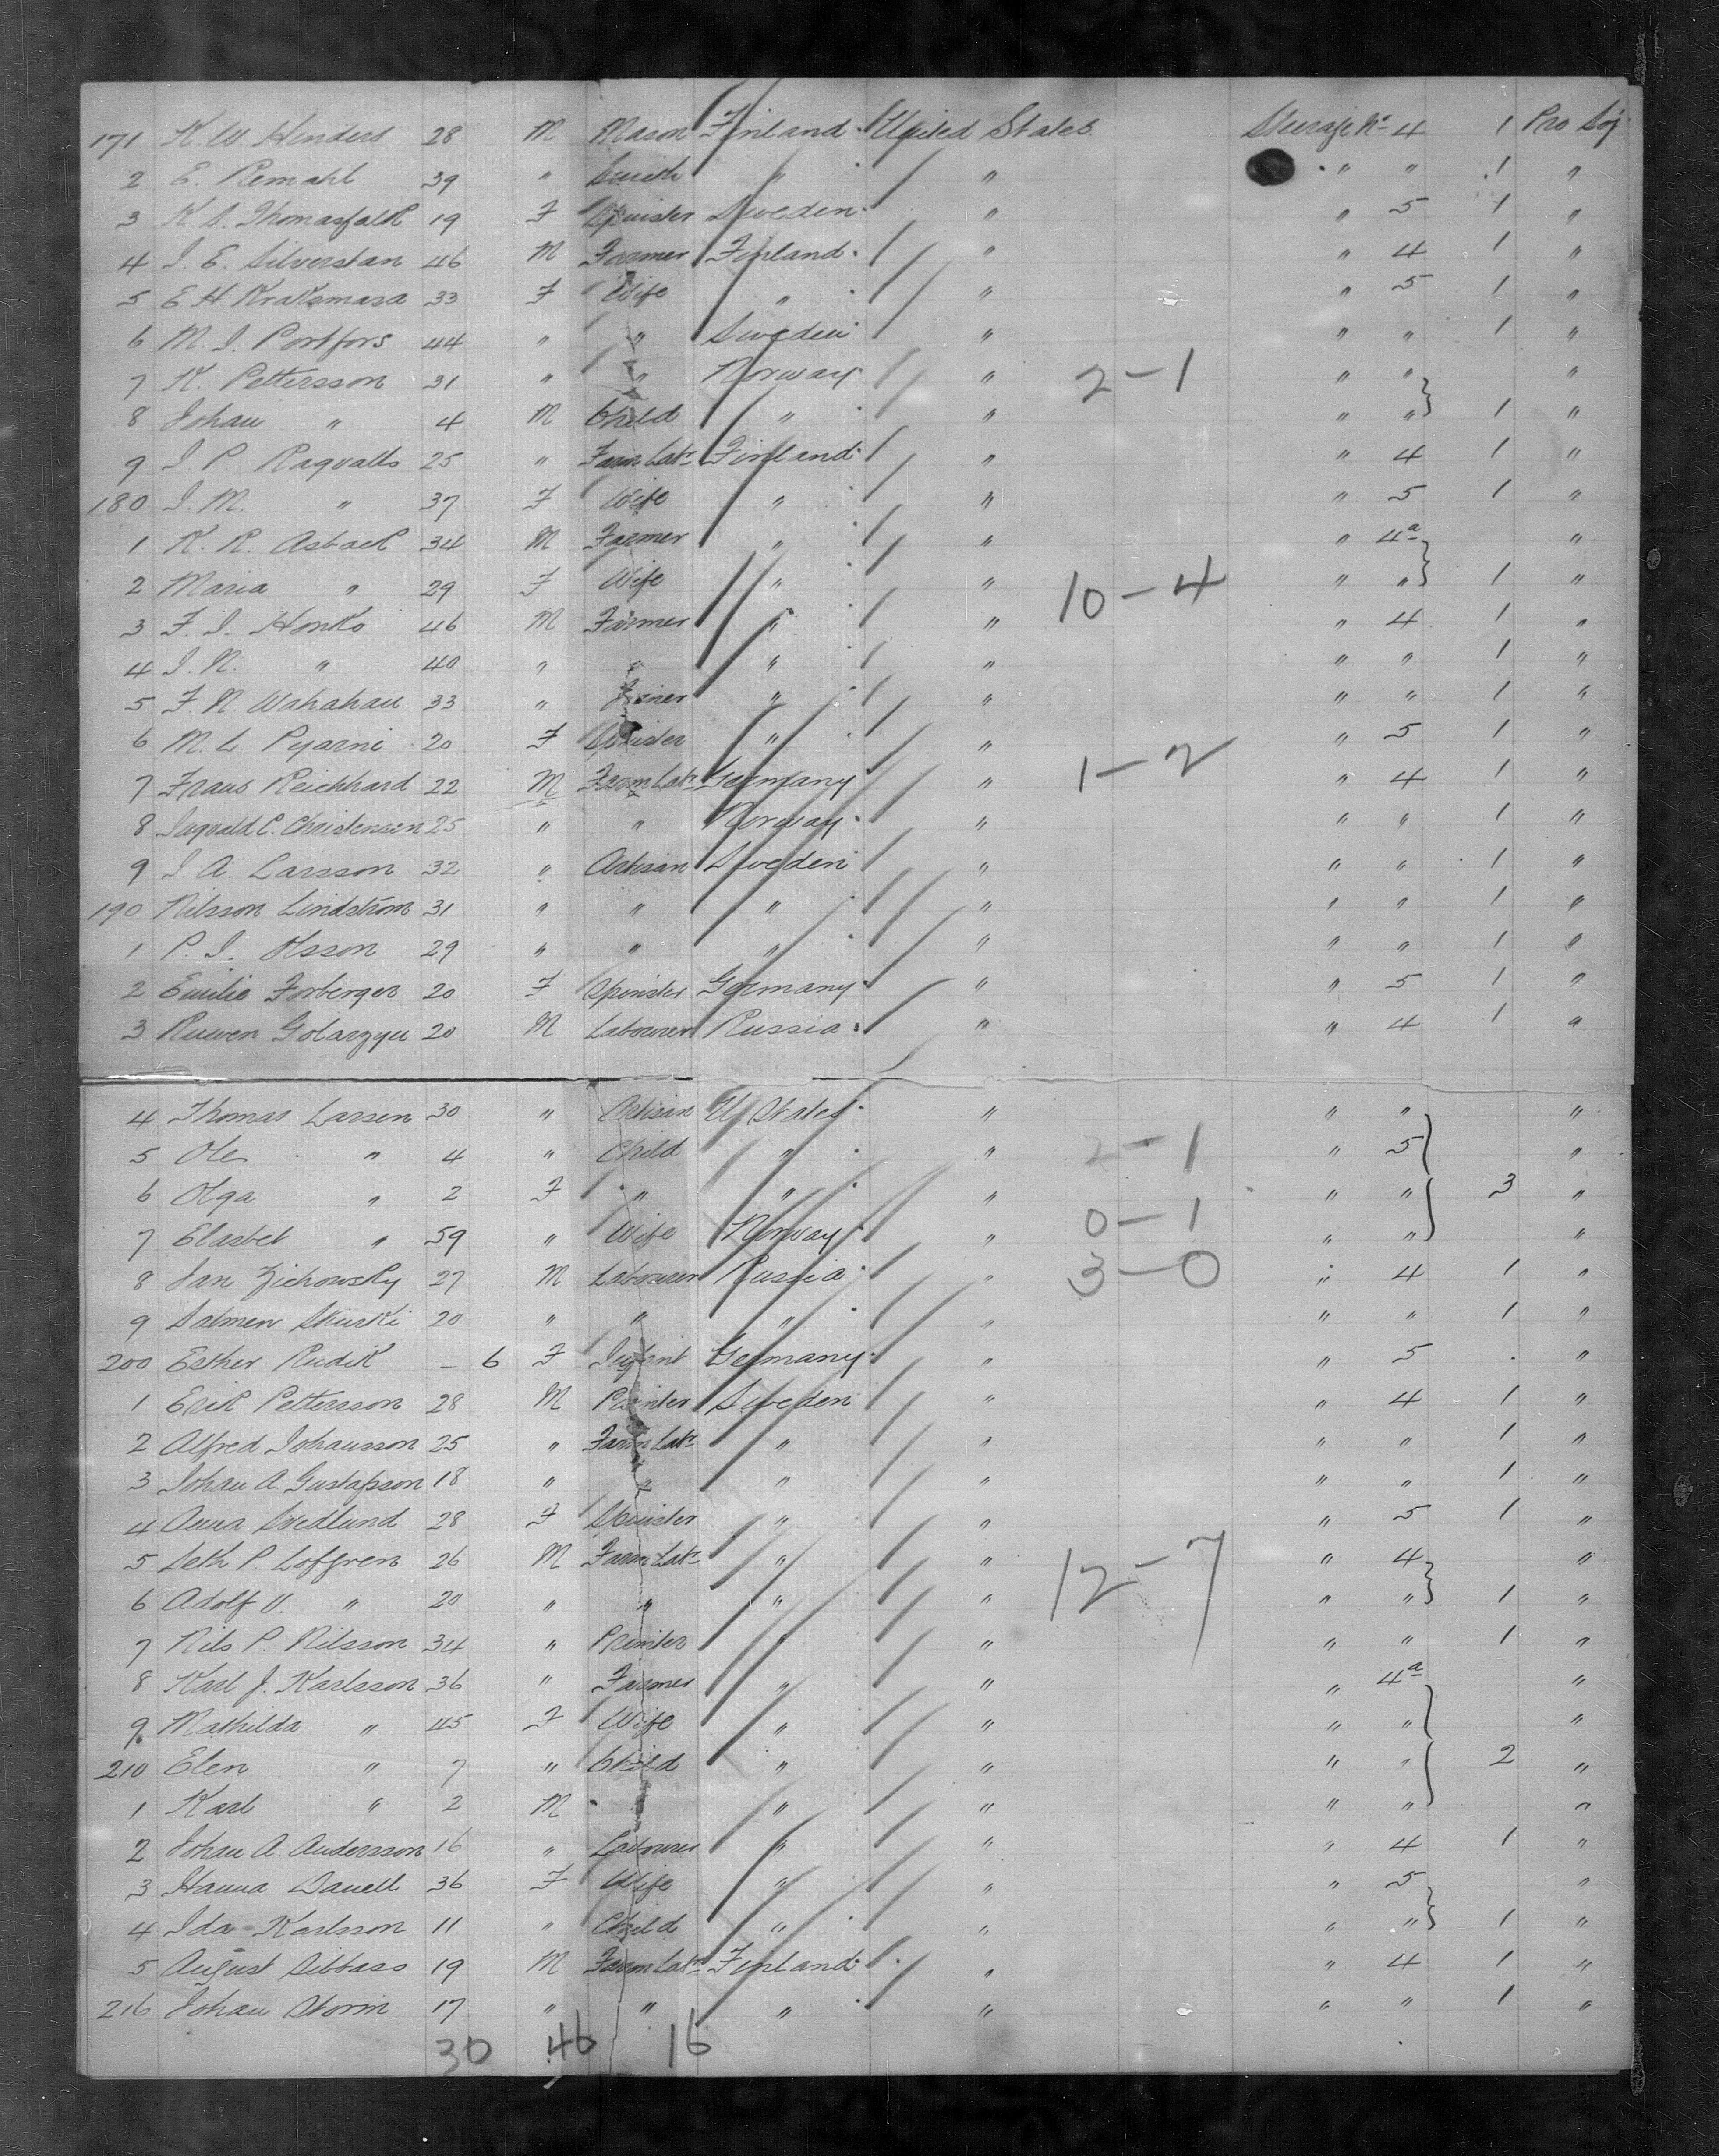 171 K. W. Hinders 28 M Mason Finland United States Steerage No 4 1 Pro Soj
2 E. Remahl 39 " Smith " " " " 1 "
3 K. S. Thomasfalk 19 F Spinster Sweden " " 5 1 "
4 J. E. Silverstan 46 M Farmer Finland " " 4 1 "
5 E. H. Kraksmasa 33 F Wife " " " 5 1 "
6 M. J. Portfors 44 " " Sweden " " " 1 "
7 K. Pettersson 31 " " Norway " 2-1 " " "
8 Johan " 4 M Child " " " " 1 "
9 J. P. Ragvalls 25 " Farm Labr Finland " " 4 1 "
180 J. M. " 37 F Wife " " " 5 1 "
1 K. R. Asback 34 M Farmer " " " 4a "
2 Maria " 29 F Wife " " 10-4 " " 1 "
3 F. J. Honko 46 M Farmer " " " 4 1 "
4 J. N. " 40 " " " " " " 1 "
5 F. N. Wahahau 33 " " " " " 1 "
6 M. L. Pyarni 20 F Spinster " " " 5 1 "
7 Fraus Reichhard 22 M Farm Labr Germany " 1-2 " 4 1 "
8 Ingvald C. Christensen 25 " " Norway " " " 1 "
9 J. A. Larsson 32 " Artisan Sweden " " " 1 "
190 Nilsson Lindström 31 " " " " " " 1 "
1 P. J. Olsson 29 " " " " " " 1 "
2 Emilie Forberger 20 F Spinster Germany " " 5 1 "
3 Ruwen Golarzyu 20 M Labourer Russia " " 4 1 "
4 Thomas Larsen 30 " Artisan U States " " " "
5 Ole " 4 " Child " " 2-1 " 5 "
6 Olga " 2 F " " " " " 3 "
7 Elasbet " 59 " Wife Norway " 0-1 " " "
8 Jan Zichowsky 27 M Labourer Russia " 3-0 " 4 1 "
9 Salmen Skurki 20 " " " " " " 1 "
200 Esther Rudik - 6 F Infant Germany " " 5 "
1 Erik Pettersson 28 M Painter Sweden " " 4 1 "
2 Alfred Johansson 25 " Farm Labr " " " " 1 "
3 Johan A. Gustafsson 18 " " " " " " 1 "
4 Anna Svedlund 28 F Spinster " " " 5 1 "
5 Seth P. Lofgren 26 M Farm Labr " " 12-7 " 4 "
6 Adolf V. " 20 " " " " " " 1 "
7 Nils P. Nilsson 34 " Painter " " " " 1 "
8 Karl J. Karlsson 36 " Farmer " " " 4a "
9 Mathilda " 45 F Wife " " " " "
210 Elen " 7 " Child " " " " 2 "
1 Karl " 2 M " " " " " "
2 Johan A. Andersson 16 " Labourer " " " 4 1 "
3 Hanna Danell 36 F Wife " " " 5 "
4 Ida Karlsson 11 " Child " " " " 1 "
5 August Sibbass 19 M Farm Labr Finland " " 4 1 "
216 Johan Storm 17 " " " " " " 1 "
30 46 16